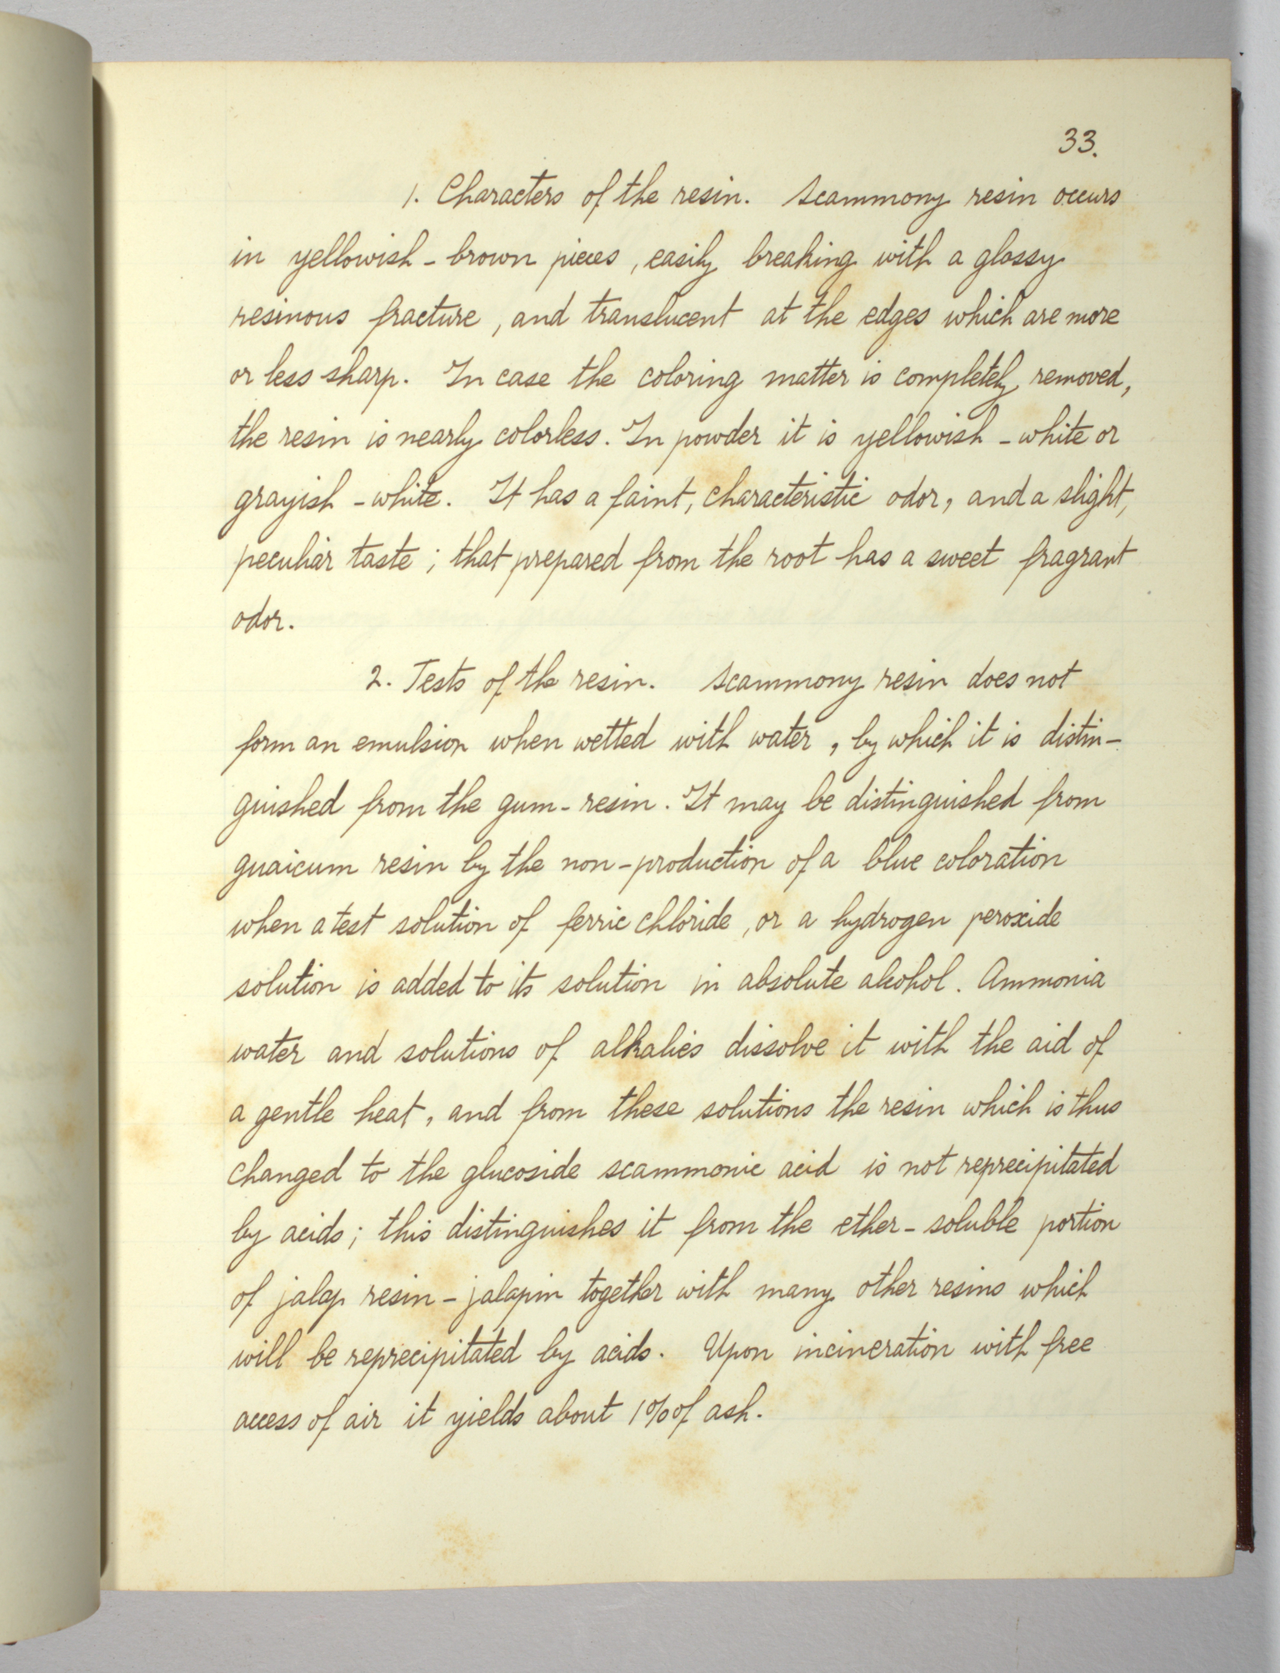 33.
1. Characters of the resin. Scammony resin occurs
in yellowish-brown pieces, easily breaking with a glossy
resinous fracture, and translucent at the edges which are more
or less sharp. In case the coloring matter is completely removed,
the resin is nearly colorless. In powder it is yellowish-white or
grayish-white. It has a faint, characteristic odor, and a slight,
peculiar taste; that prepared from the root has a sweet fragrant
odor.
2. Tests of the resin. Scammony resin does not
form an emulsion when wetted with water, by which it is distin-
guished from the gum-resin. It may be distinguished from
guaicum resin by the non-production of a blue coloration
when a test solution of ferric chloride, or a hydrogen peroxide
solution is added to its solution in absolute alcohol. Ammonia
water and solutions of alkalies dissolve it with the aid of
a gentle heat, and from these solutions the resin which is thus
changed to the glucoside scammonic acid is not reprecipitated
by acids; this distinguishes it from the ether-soluble portion
of jalap resin - jalapin together with many other resins which
will be reprecipitated by acids. Upon incineration with free
access of air it yields about 1% of ash.